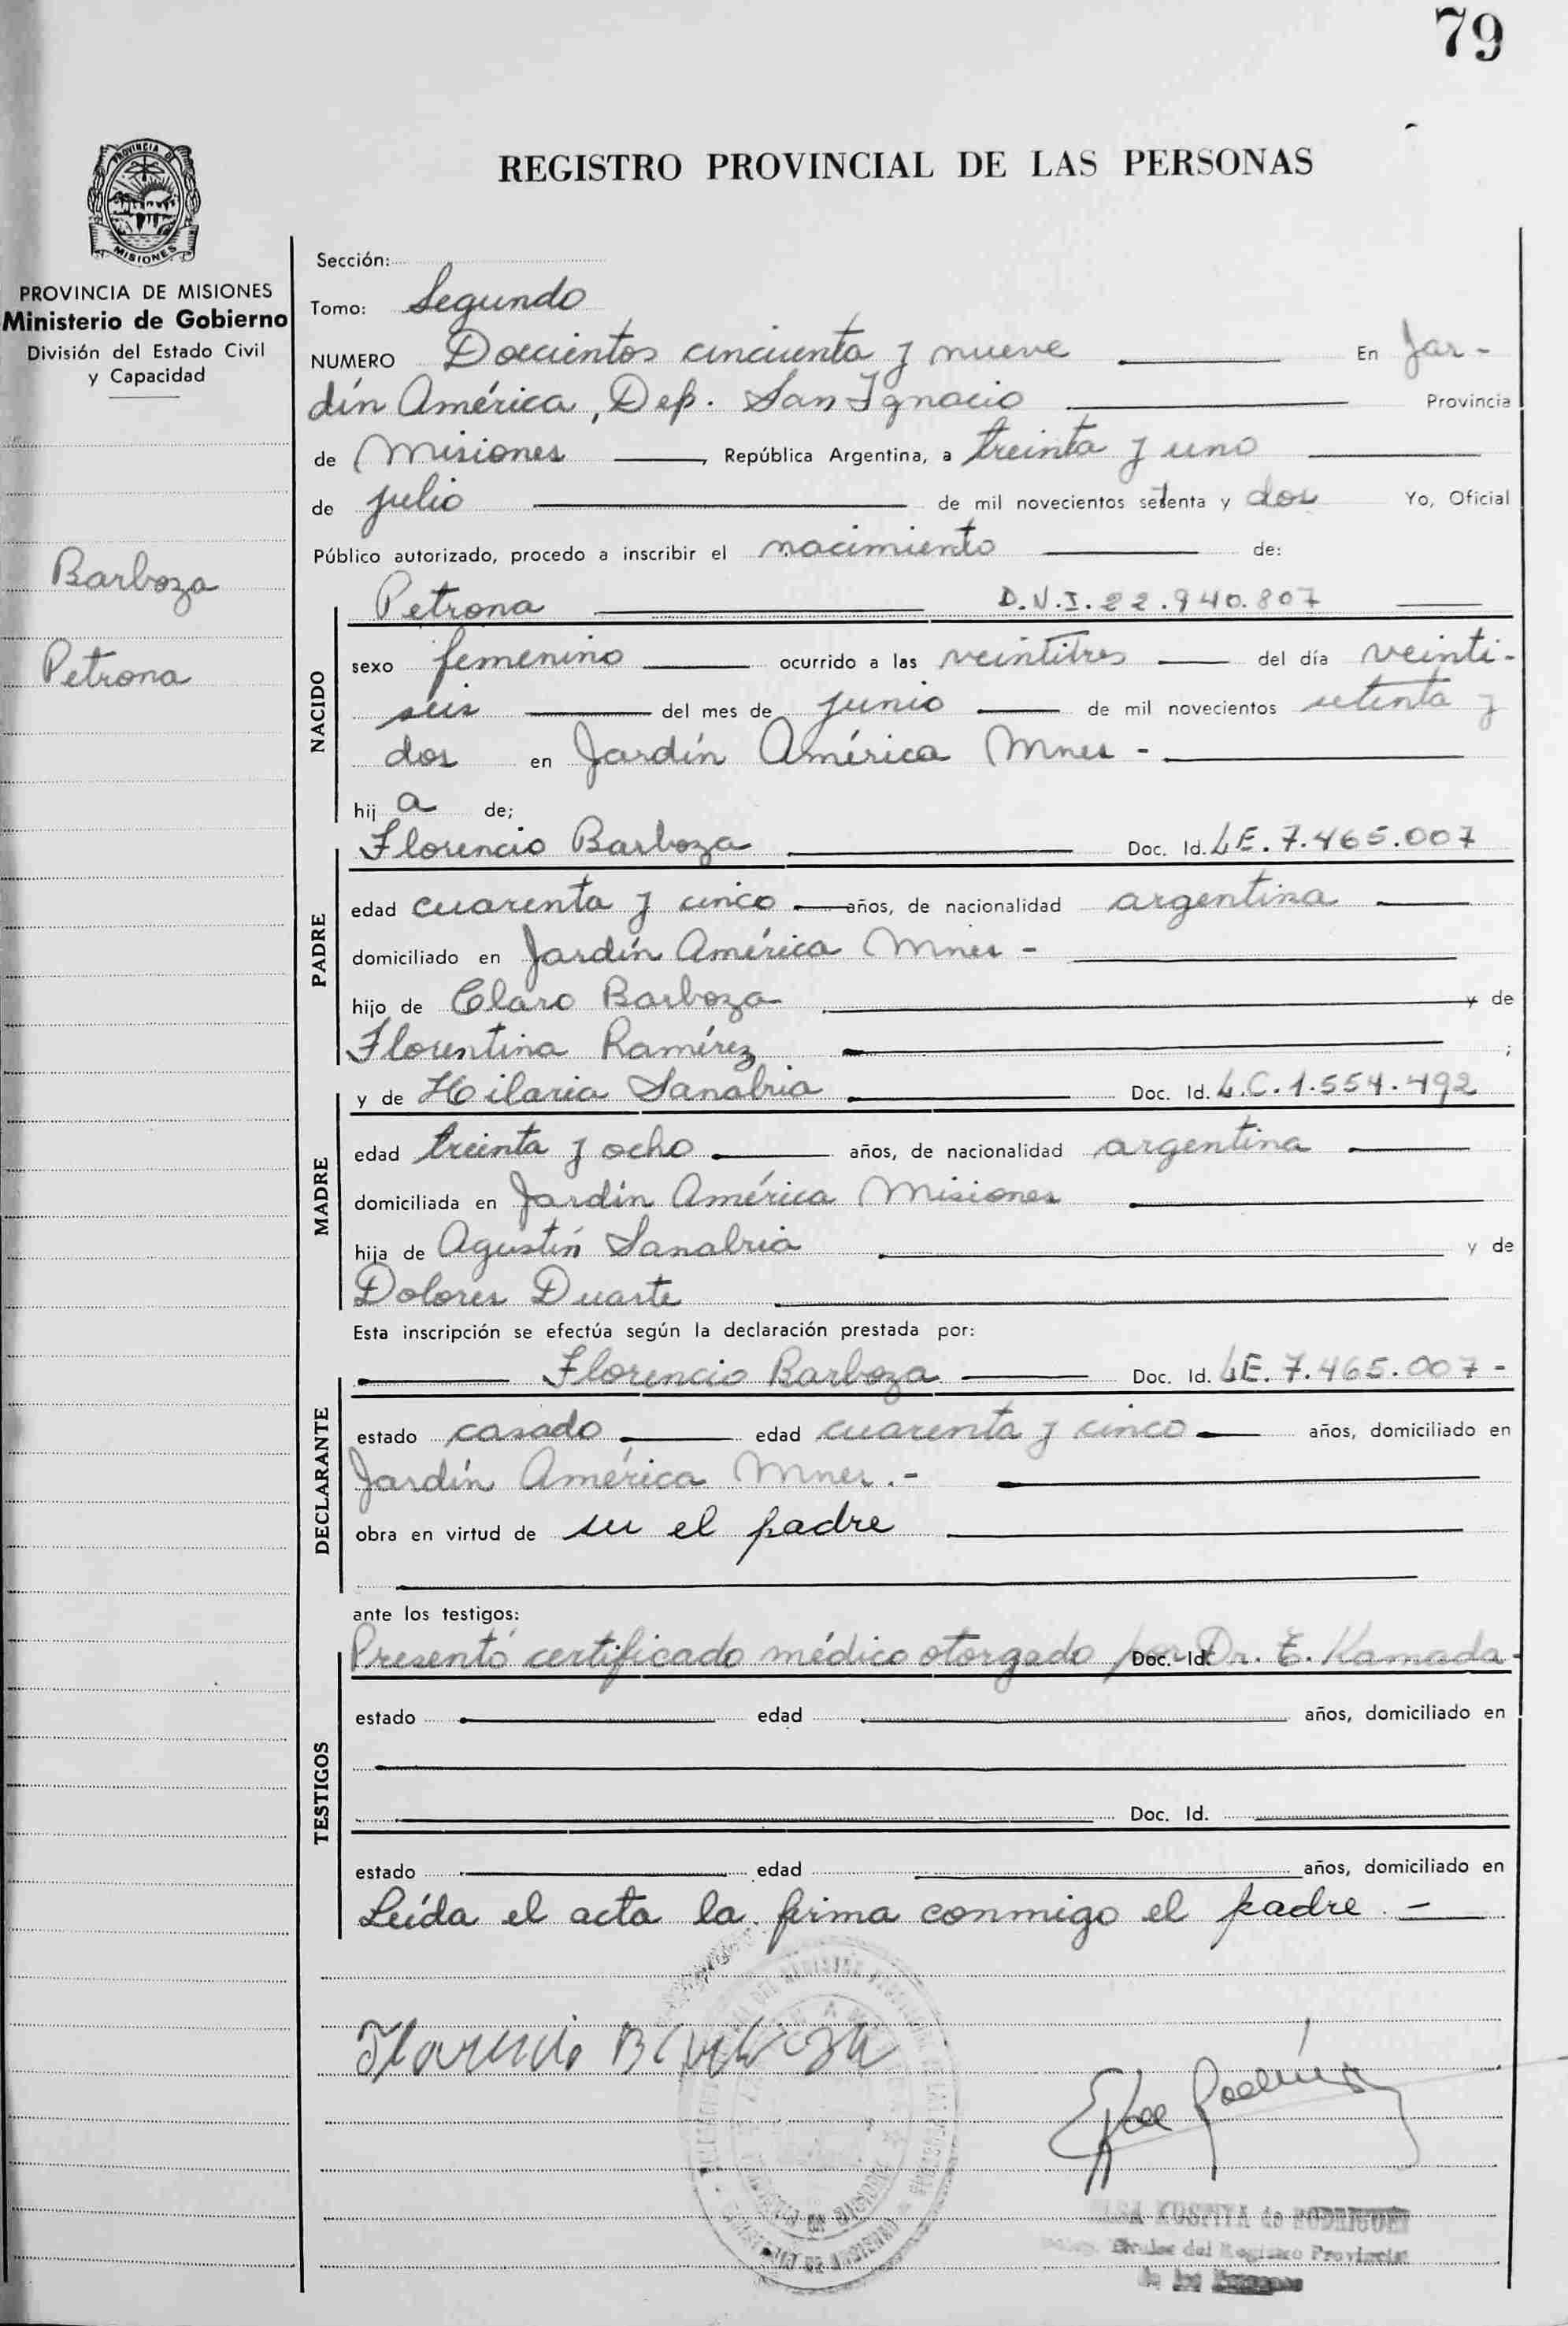 79
PROVINCIA DE
MISIONES
REGISTRO PROVINCIAL DE LAS PERSONAS
PROVINCIA DE MISIONES
Ministerio de Gobierno
División del Estado Civil
y Capacidad
Barboza
Petrona
Sección:
Tomo: Segundo
NUMERO Doscientos cincuenta y nueve En Jar-
dín América, Dep. San Ignacio Provincia
de Misiones, República Argentina, a treinta y uno
de julio de mil novecientos setenta y dos Yo, Oficial
Público autorizado, procedo a inscribir el nacimiento de:
Petrona D.N.I. 22.940.807
NACIDO
sexo femenino ocurrido a las veintitres del día veinti-
seis del mes de junio de mil novecientos setenta y
dos en Jardín América Mnes -
hij a de;
Florencio Barboza Doc. Id. LE. 7.465.007
PADRE
edad cuarenta y cinco años, de nacionalidad argentina
domiciliado en Jardín América Mnes -
hijo de Claro Barboza y de
Florentina Ramírez ;
y de Hilaria Sanabria Doc. Id. L.C. 1.554.492
MADRE
edad treinta y ocho años, de nacionalidad argentina
domiciliada en Jardín América Misiones
hija de Agustín Sanabria y de
Dolores Duarte
Esta inscripción se efectúa según la declaración prestada por:
Florencio Barboza Doc. Id. LE. 7.465.007 -
DECLARANTE
estado casado edad cuarenta y cinco años, domiciliado en
Jardín América Mnes. -
obra en virtud de ser el padre
ante los testigos:
Presentó certificado médico otorgado por Doc. Id. Dr. E. Kamada -
TESTIGOS
estado edad años, domiciliado en
Doc. Id.
estado edad años, domiciliado en
Leída el acta la firma conmigo el padre. -
Florencio Barboza
de RODRIGUEZ
del Registro Provincial
de las Personas